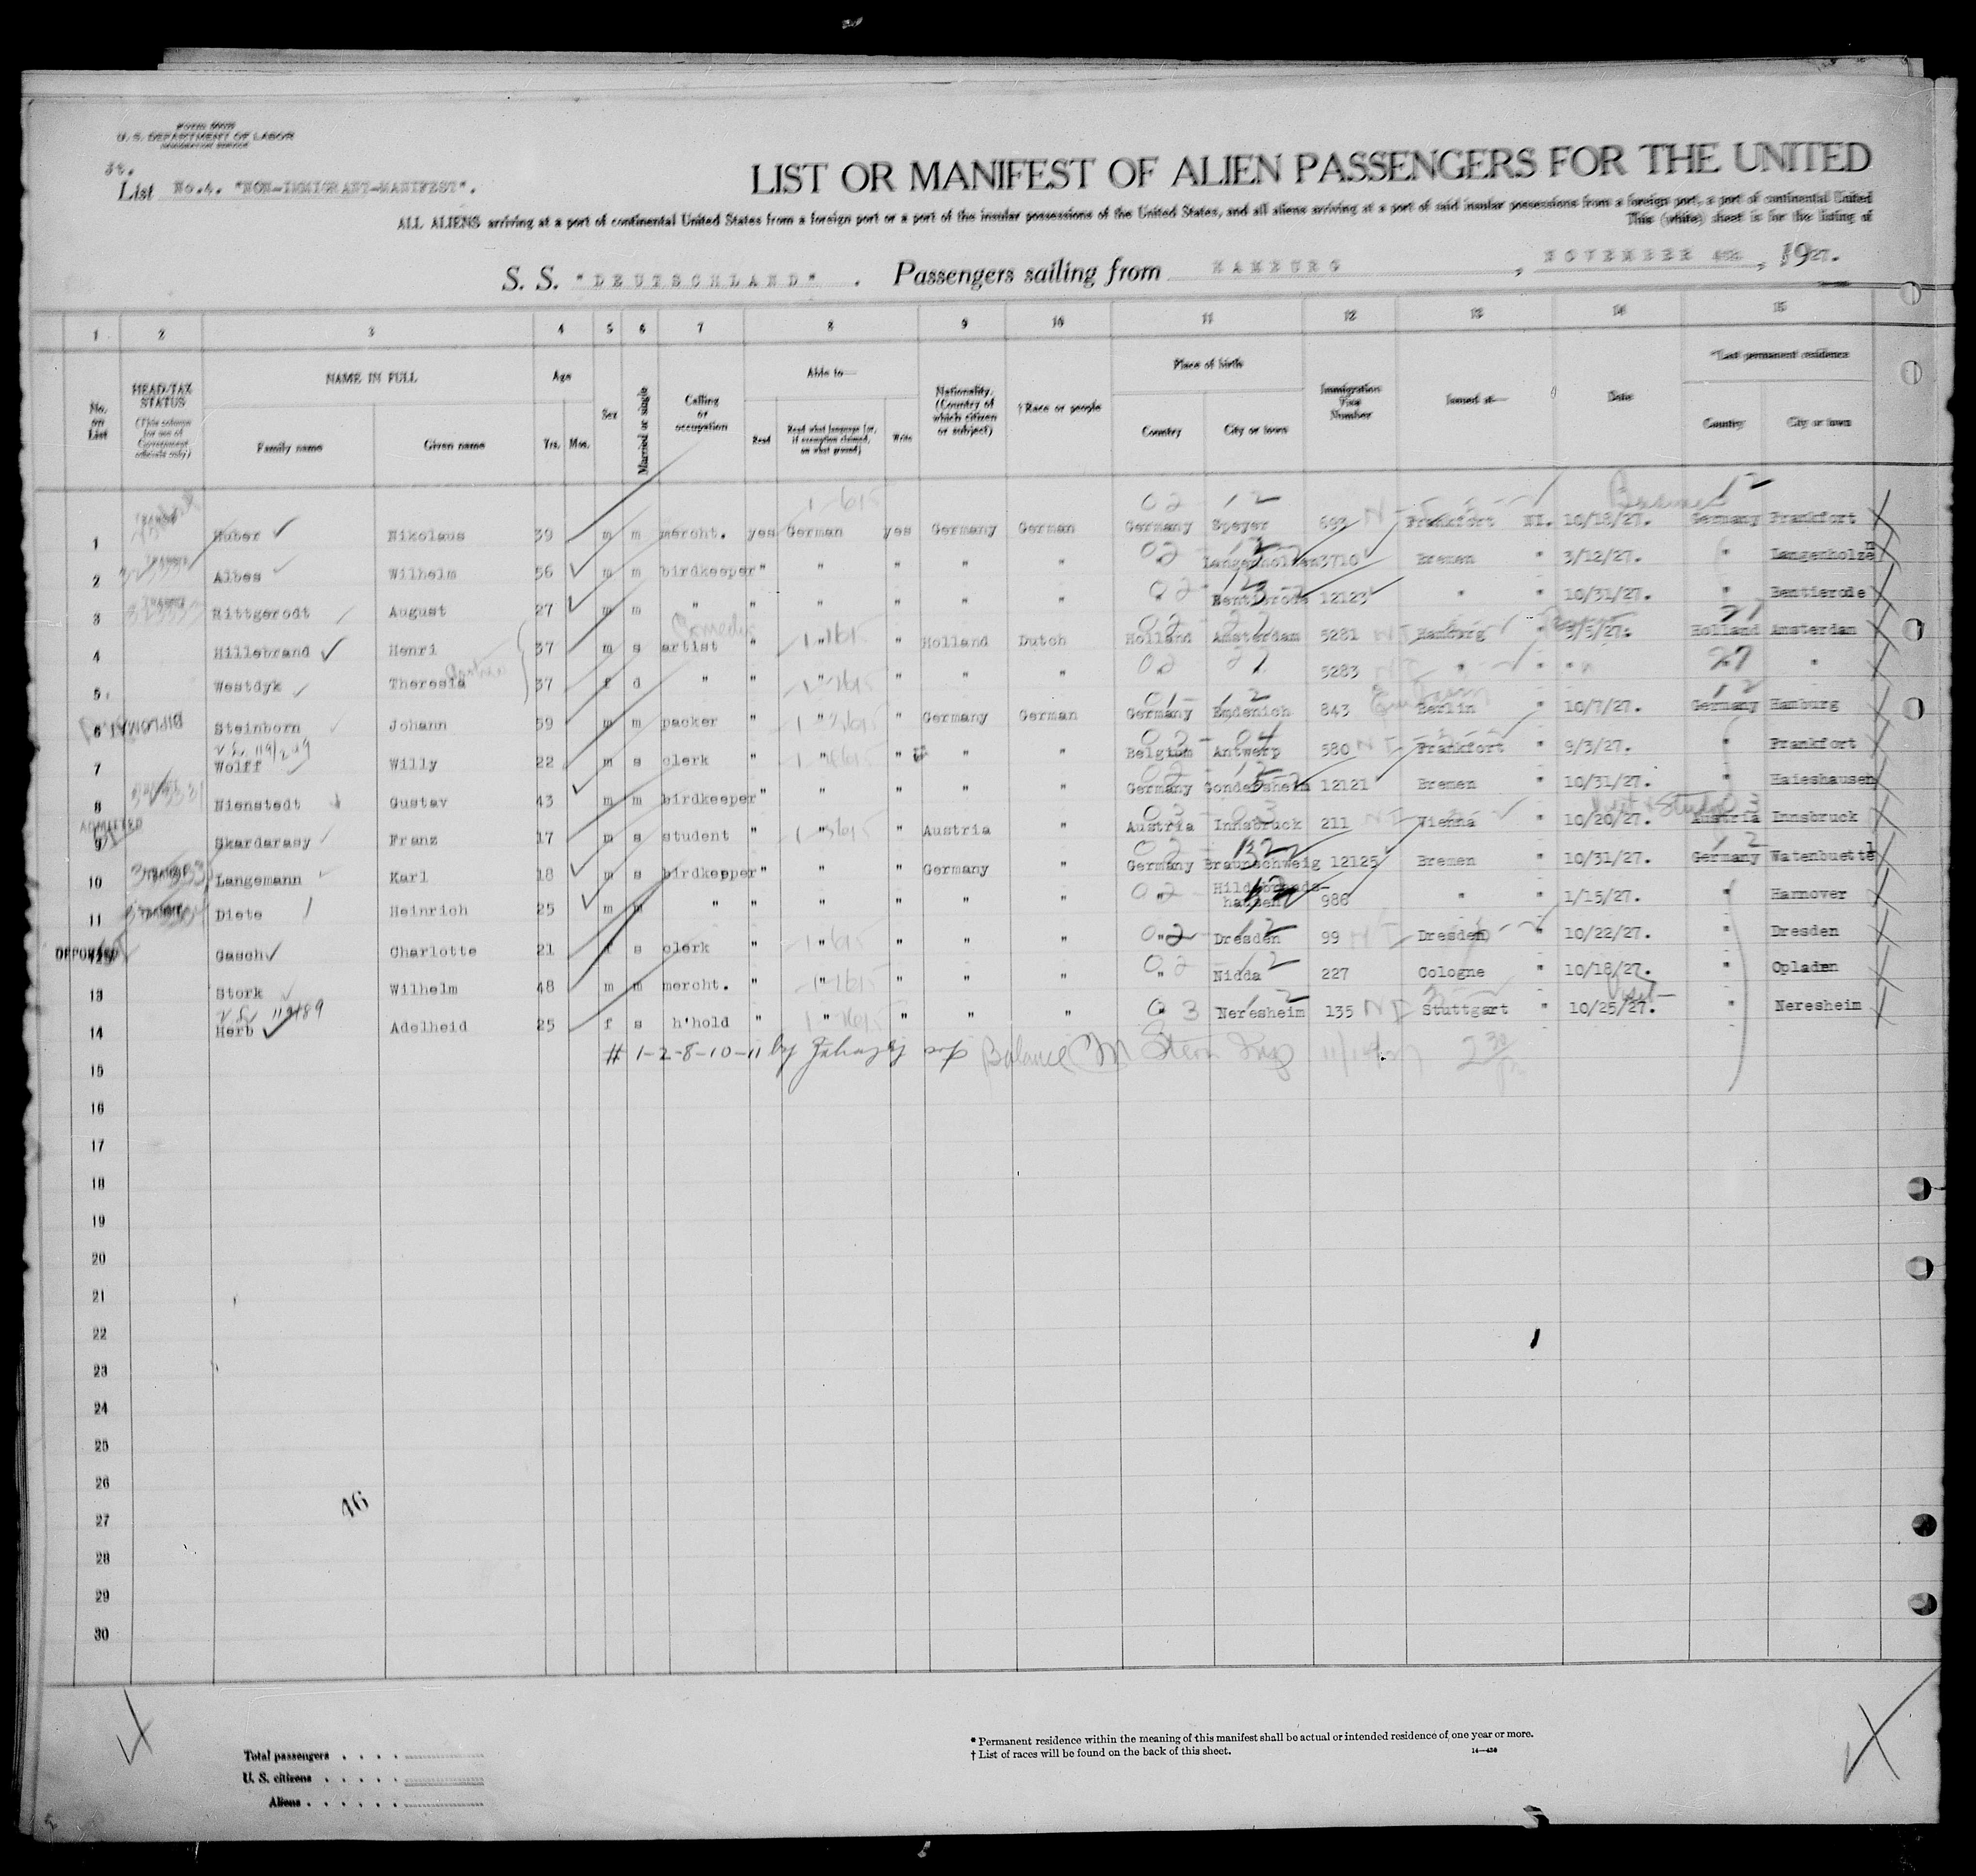 U. S. DEPARTMENT OF LABOR
List No.4. "NON-IMMIGRANT-MANIFEST".
LIST OR MANIFEST OF ALIEN PASSENGERS FOR THE UNITED
ALL ALIENS arriving at a port of continental United States from a foreign port or a port of the insular possessions of the United States, and all aliens arriving at a port of said insular possessions from a foreign port, a port of continental United
This (white) sheet is for the listing of
S. S. "DEUTSCHLAND". Passengers sailing from HAMBURG, NOVEMBER 4th, 1927.
1 2 3 4 5 6 7 8 9 10 11 12 13 14 15
No. on List
HEAD-TAX STATUS (This column for use of Government officials only)
NAME IN FULL Family name Given name
Age Yrs. Mos.
Sex
Married or single
Calling or occupation
Able to— Read Read what language [or, if exemption claimed, on what ground] Write
Nationality. (Country of which citizen or subject)
† Race or people
Place of birth Country City or town
Immigration Visa Number
Issued at—
Date
*Last permanent residence Country City or town
1 Huber Nikolaus 39 m m mercht. yes German yes Germany German Germany Speyer 693 Frankfort NI. 10/18/27. Germany Frankfort
2 Albes Wilhelm 56 m m birdkeeper " " " " " " Langenholzen 3710 Bremen " 3/12/27. " Langenholzen
3 Rittgerodt August 27 m m " " " " " " " Bentierode 12123 " " 10/31/27. " Bentierode
4 Hillebrand Henri 37 m s artist " " " Holland Dutch Holland Amsterdam 5281 Hamburg " 9/5/27. Holland Amsterdam
5 Westdyk Theresia 37 f d " " " " " 5283 " " " " "
6 Steinborn Johann 59 m m packer " " " Germany German Germany Emdenich 843 Berlin " 10/7/27. Germany Hamburg
7 Wolff Willy 22 m s clerk " " " " " Belgium Antwerp 580 Frankfort " 9/3/27. " Frankfort
8 Nienstedt Gustav 43 m m birdkeeper " " " " " Germany Gondersheim 12121 Bremen " 10/31/27. " Haieshausen
ADMITTED
9 Skardarasy Franz 17 m s student " " " Austria " Austria Innsbruck 211 Vienna " 10/20/27. Austria Innsbruck
10 Langemann Karl 18 m s birdkeeper " " " Germany " Germany Braunschweig 12125 Bremen " 10/31/27. Germany Watenbuettel
11 Diete Heinrich 25 m m " " " " " " " 986 " " 1/15/27. " Hannover
DEPORTED
12 Gasch Charlotte 21 f s clerk " " " " " " Dresden 99 Dresden " 10/22/27. " Dresden
13 Stork Wilhelm 48 m m mercht. " " " " " " Nidda 227 Cologne " 10/18/27. " Opladen
14 Herb Adelheid 25 f s h'hold " " " " " " Neresheim 135 Stuttgart " 10/25/27. " Neresheim
# 1-2-8-10-11 by
15
16
17
18
19
20
21
22
23
24
25
26
46
27
28
29
30
Total passengers
U. S. citizens
Aliens
* Permanent residence within the meaning of this manifest shall be actual or intended residence of one year or more.
† List of races will be found on the back of this sheet.